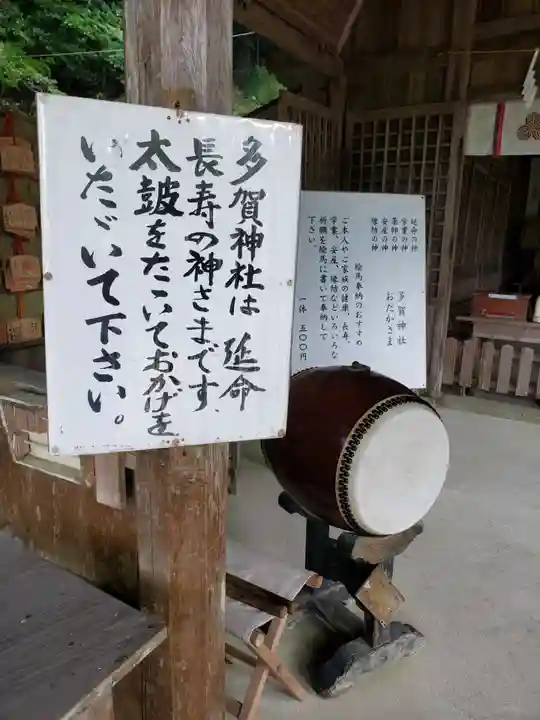 多賀神社は 延命
長寿の神さまです、
太鼓をたたいておかげを
いただいて下さい。
延命の神
学業の神
薬師の神
安産の神
縁结の神
多賀神社
おたがさま
絵馬奉納のおすすめ
ご本人やご家族の健康、長寿、
学業、安産、縁結などいろいろな
祈願を絵馬に書いて奉納して
下さい。
一体 五〇〇円